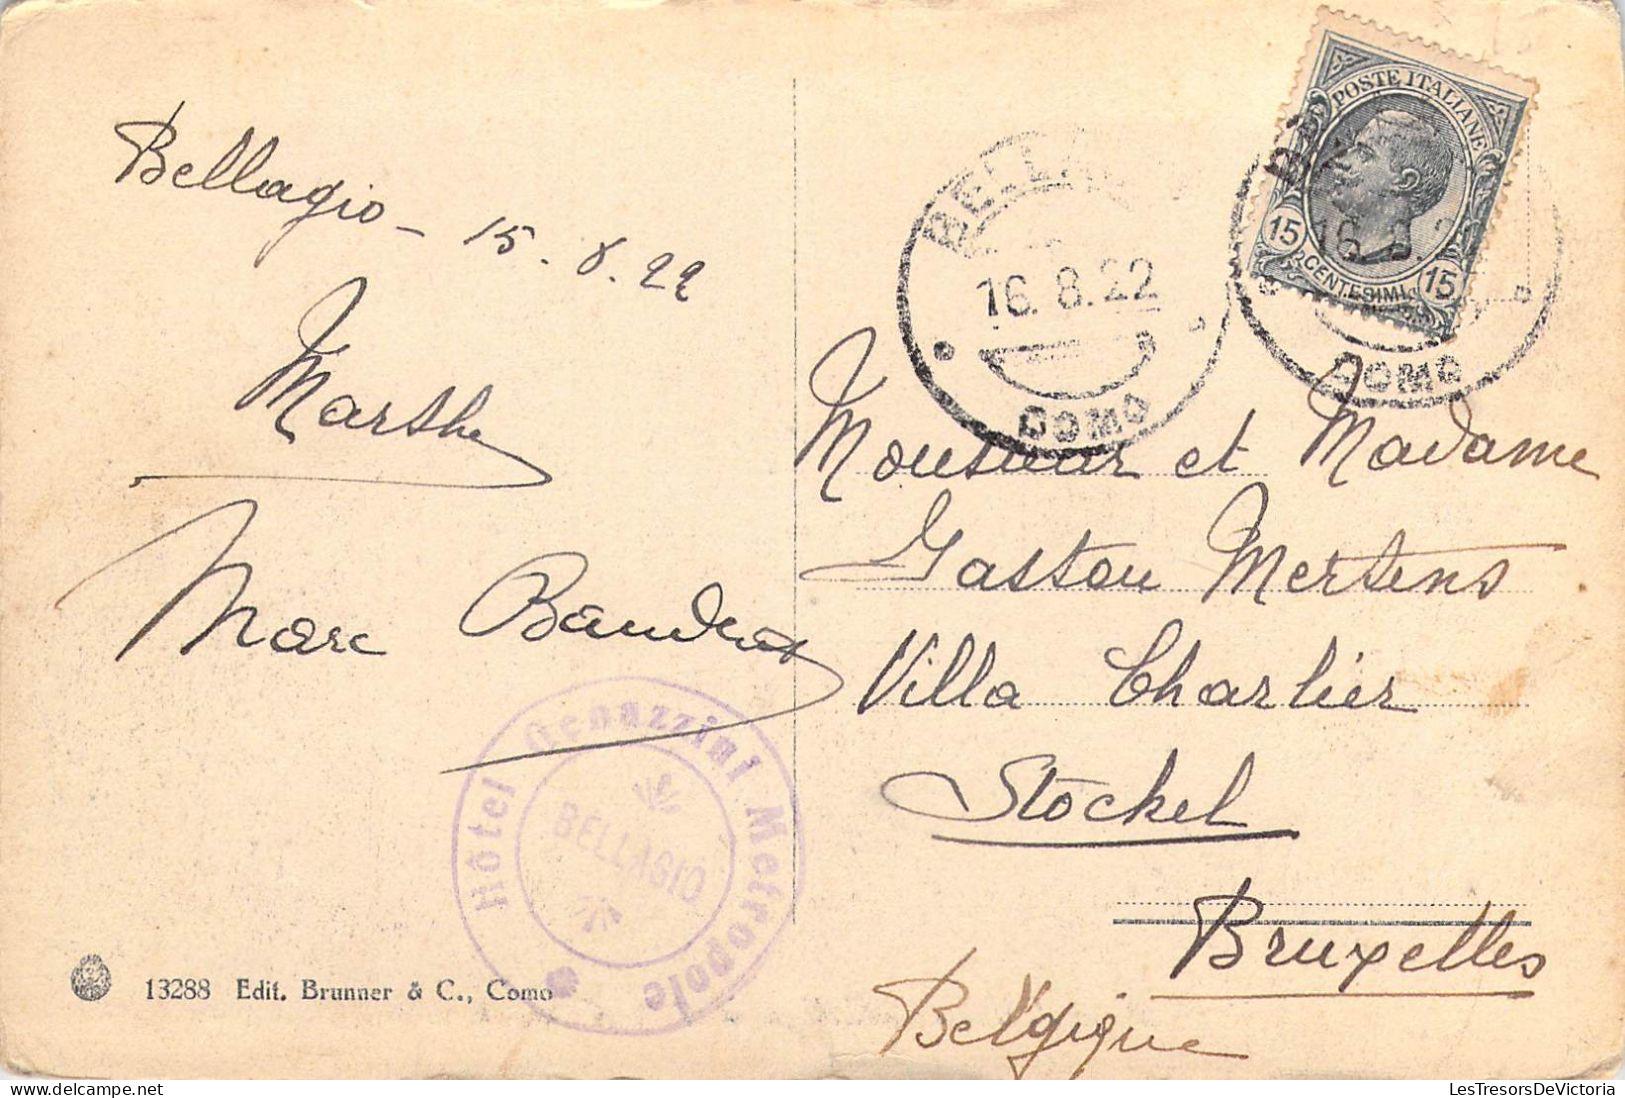 Bellagio - 15.8.22
Marthe
Marc Baudoux
13288 Edit. Brunner & C., Como
Hôtel Genazzini Metropole
BELLAGIO
BELLAGIO
16.8.22
COMO
POSTE ITALIANE
15 CENTESIMI 15
16.8.
COMO
Monsieur et Madame
Gaston Mertens
Villa Charlier
Stockel
Bruxelles
Belgique
delcampe.net
LesTresorsDeVictoria